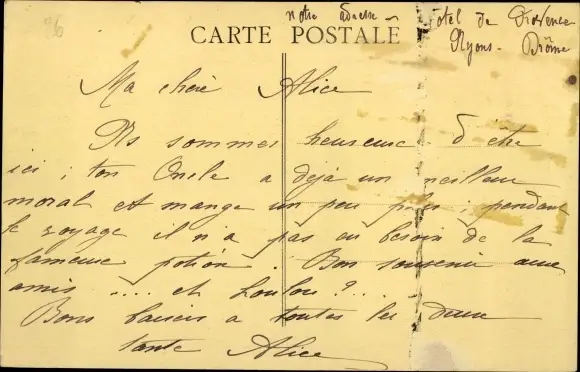 notre adresse Hotel de Provence
CARTE POSTALE
Nyons - Drôme
Ma chère Alice
Ns sommes heureux d'être
ici ; ton Oncle a déjà un meilleur
moral et mange un peu plus ; pendant
le voyage il n'a pas eu besoin de la
fameuse potion. Bon souvenir aux
amis .... et Loulou ?...
Bons baisers a toutes les deux
tante Alice